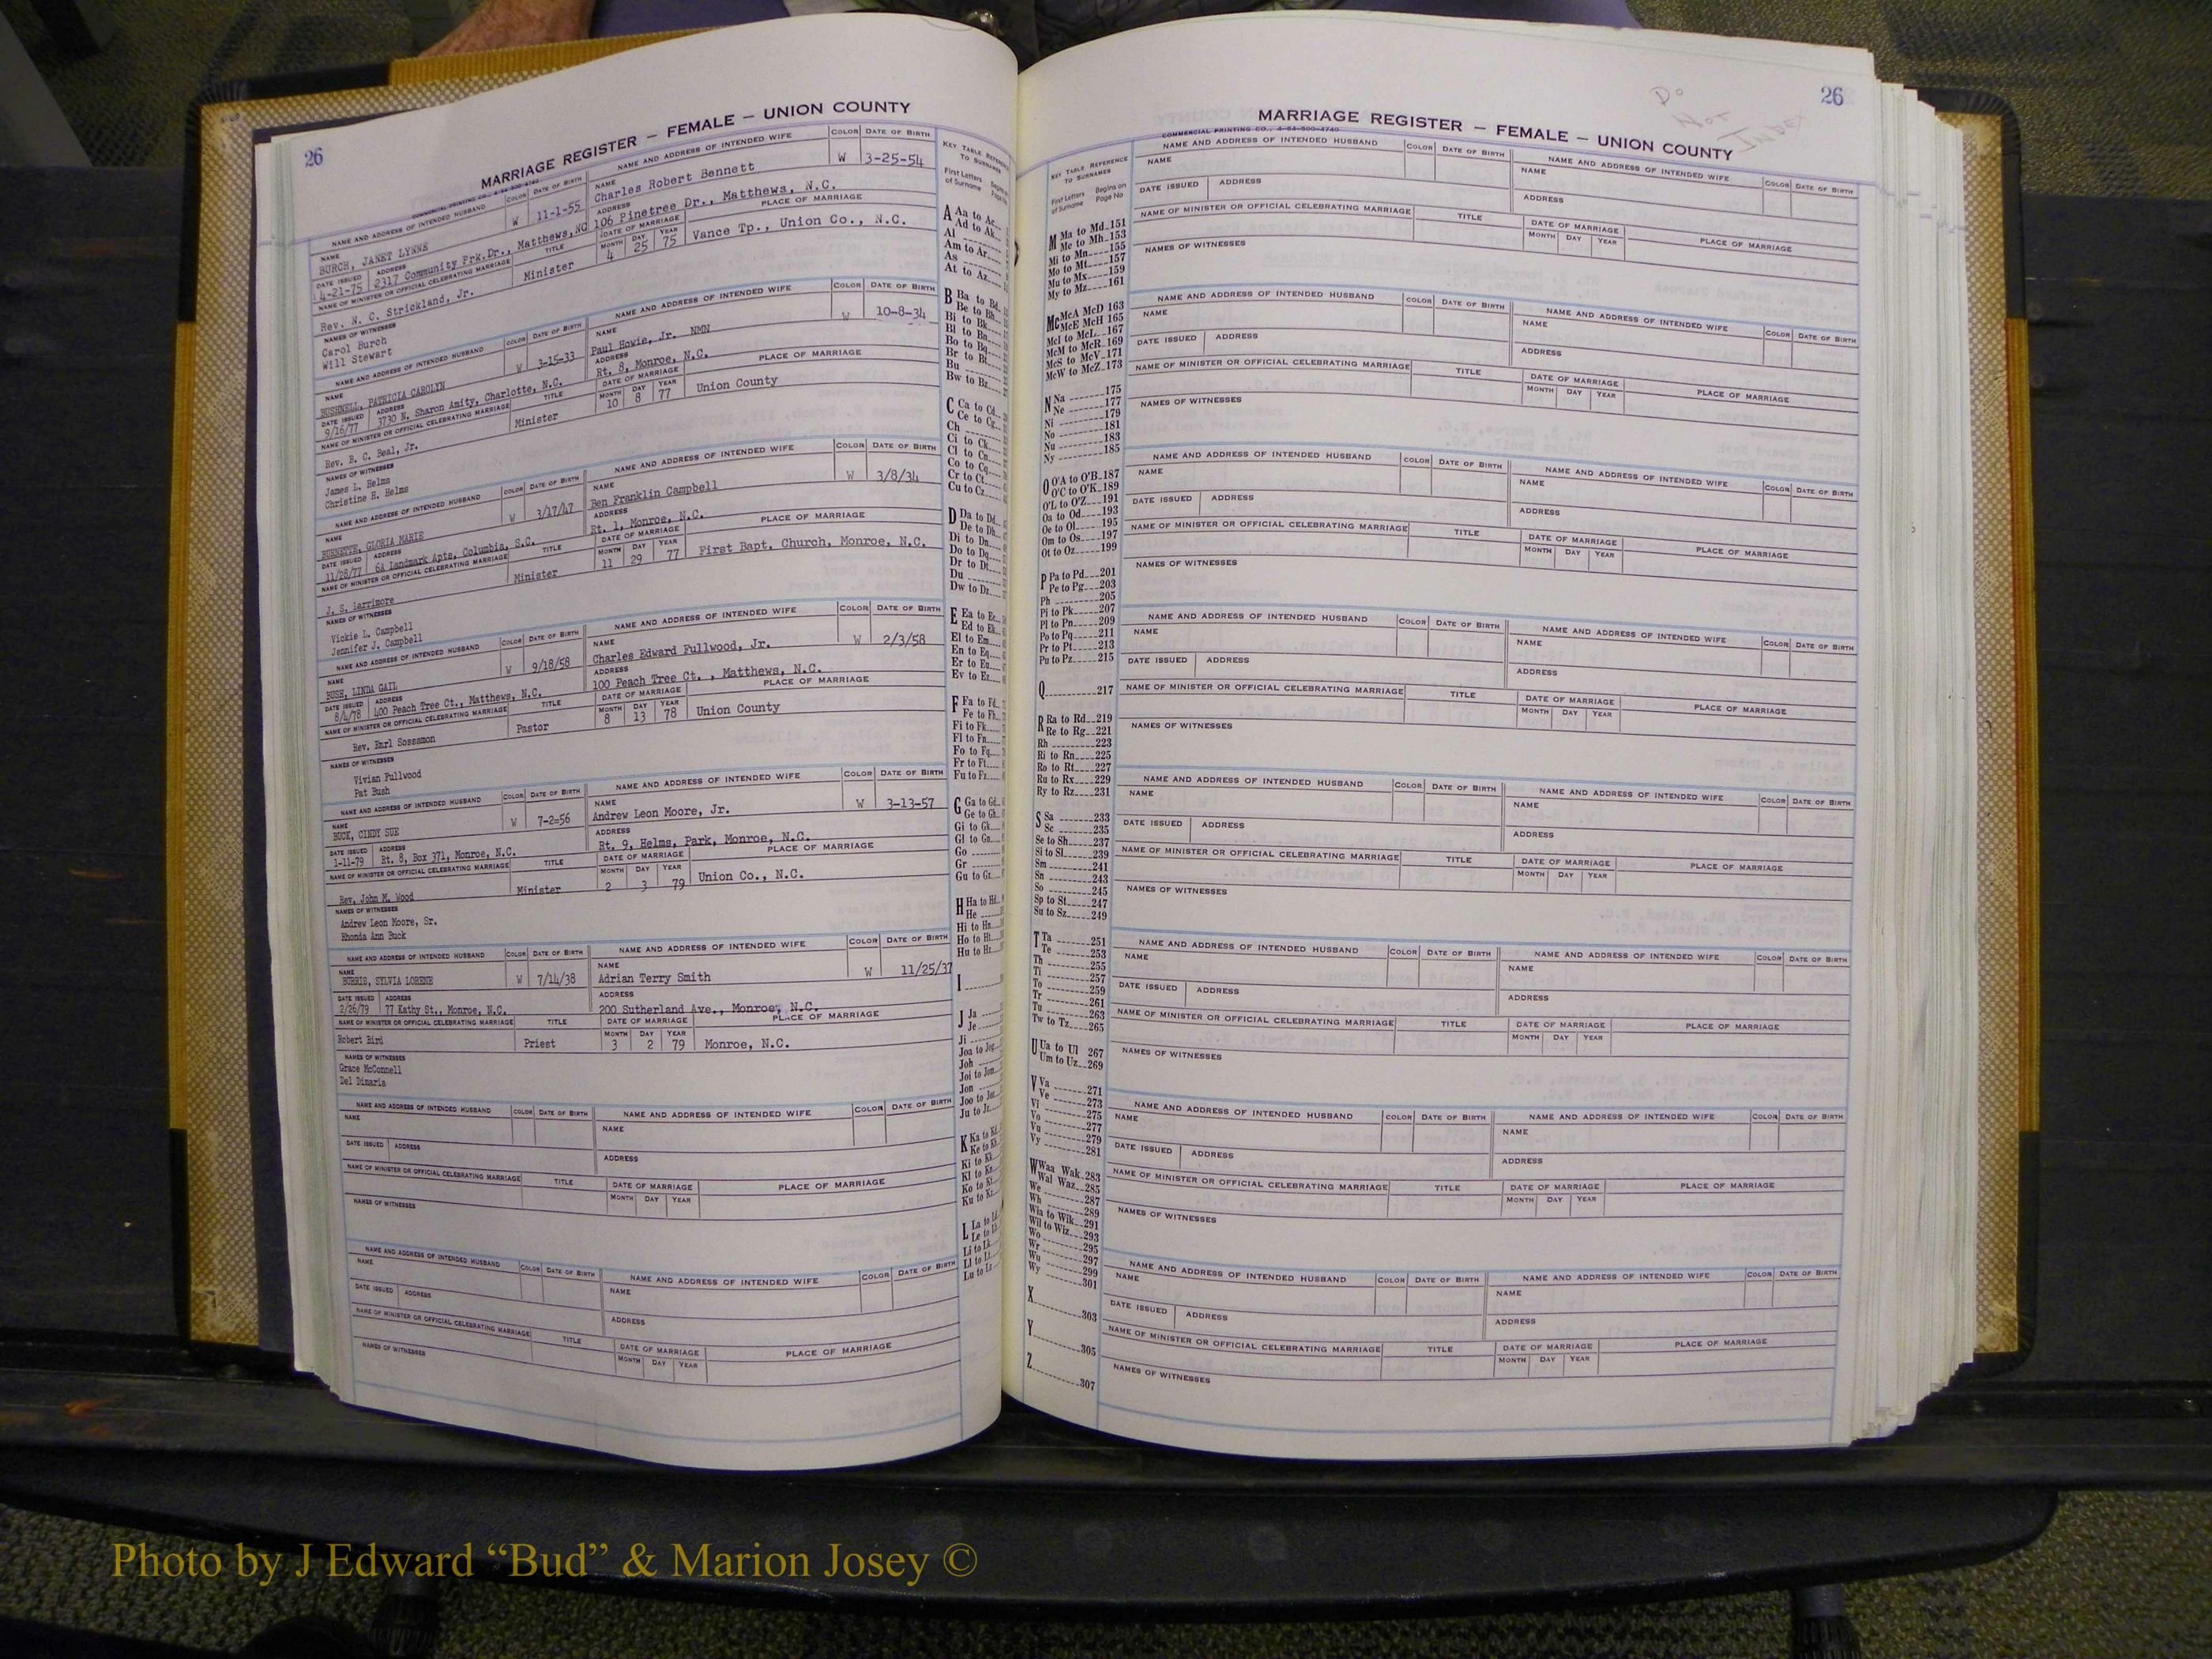 26
MARRIAGE REGISTER — FEMALE — UNION COUNTY
COMMERCIAL PRINTING CO., 4-64-500-4740
NAME AND ADDRESS OF INTENDED HUSBAND COLOR DATE OF BIRTH NAME AND ADDRESS OF INTENDED WIFE COLOR DATE OF BIRTH
NAME BURCH, JANET LYNNE W 11-1-55 NAME Charles Robert Bennett W 3-25-54
DATE ISSUED 4-21-75 ADDRESS 2317 Community Prk.Dr., Matthews,NC ADDRESS 106 Pinetree Dr., Matthews, N.C.
NAME OF MINISTER OR OFFICIAL CELEBRATING MARRIAGE TITLE DATE OF MARRIAGE PLACE OF MARRIAGE
MONTH DAY YEAR
Rev. N. C. Strickland, Jr. Minister 4 25 75 Vance Tp., Union Co., N.C.
NAMES OF WITNESSES
Carol Burch
Will Stewart
NAME AND ADDRESS OF INTENDED HUSBAND COLOR DATE OF BIRTH NAME AND ADDRESS OF INTENDED WIFE COLOR DATE OF BIRTH
NAME BUSHNELL, PATRICIA CAROLYN W 3-15-33 NAME Paul Howie, Jr. NMN W 10-8-34
DATE ISSUED 9/16/77 ADDRESS 3730 N. Sharon Amity, Charlotte, N.C. ADDRESS Rt. 8, Monroe, N.C.
NAME OF MINISTER OR OFFICIAL CELEBRATING MARRIAGE TITLE DATE OF MARRIAGE PLACE OF MARRIAGE
MONTH DAY YEAR
Rev. B. C. Beal, Jr. Minister 10 8 77 Union County
NAMES OF WITNESSES
James L. Helms
Christine H. Helms
NAME AND ADDRESS OF INTENDED HUSBAND COLOR DATE OF BIRTH NAME AND ADDRESS OF INTENDED WIFE COLOR DATE OF BIRTH
NAME BURNETTE, GLORIA MARIE W 3/17/47 NAME Ben Franklin Campbell W 3/8/34
DATE ISSUED 11/28/77 ADDRESS 6A Landmark Apts, Columbia, S.C. ADDRESS Rt. 1, Monroe, N.C.
NAME OF MINISTER OR OFFICIAL CELEBRATING MARRIAGE TITLE DATE OF MARRIAGE PLACE OF MARRIAGE
MONTH DAY YEAR
J. S. Larrimore Minister 11 29 77 First Bapt. Church, Monroe, N.C.
NAMES OF WITNESSES
Vickie L. Campbell
Jennifer J. Campbell
NAME AND ADDRESS OF INTENDED HUSBAND COLOR DATE OF BIRTH NAME AND ADDRESS OF INTENDED WIFE COLOR DATE OF BIRTH
NAME BUSH, LINDA GAIL W 9/18/58 NAME Charles Edward Fullwood, Jr. W 2/3/58
DATE ISSUED 8/4/78 ADDRESS 400 Peach Tree Ct., Matthews, N.C. ADDRESS 100 Peach Tree Ct. , Matthews, N.C.
NAME OF MINISTER OR OFFICIAL CELEBRATING MARRIAGE TITLE DATE OF MARRIAGE PLACE OF MARRIAGE
MONTH DAY YEAR
Rev. Earl Sossamon Pastor 8 13 78 Union County
NAMES OF WITNESSES
Vivian Fullwood
Pat Bush
NAME AND ADDRESS OF INTENDED HUSBAND COLOR DATE OF BIRTH NAME AND ADDRESS OF INTENDED WIFE COLOR DATE OF BIRTH
NAME BUCK, CINDY SUE W 7-2=56 NAME Andrew Leon Moore, Jr. W 3-13-57
DATE ISSUED 1-11-79 ADDRESS Rt. 8, Box 371, Monroe, N.C. ADDRESS Rt. 9, Helms, Park, Monroe, N.C.
NAME OF MINISTER OR OFFICIAL CELEBRATING MARRIAGE TITLE DATE OF MARRIAGE PLACE OF MARRIAGE
MONTH DAY YEAR
Rev. John M. Wood Minister 2 3 79 Union Co., N.C.
NAMES OF WITNESSES
Andrew Leon Moore, Sr.
Rhonda Ann Buck
NAME AND ADDRESS OF INTENDED HUSBAND COLOR DATE OF BIRTH NAME AND ADDRESS OF INTENDED WIFE COLOR DATE OF BIRTH
NAME BURRIS, SYLVIA LORENE W 7/14/38 NAME Adrian Terry Smith W 11/25/37
DATE ISSUED 2/26/79 ADDRESS 77 Kathy St., Monroe, N.C. ADDRESS 200 Sutherland Ave., Monroe, N.C.
NAME OF MINISTER OR OFFICIAL CELEBRATING MARRIAGE TITLE DATE OF MARRIAGE PLACE OF MARRIAGE
MONTH DAY YEAR
Robert Bird Priest 3 2 79 Monroe, N.C.
NAMES OF WITNESSES
Grace McConnell
Del Dimaris
NAME AND ADDRESS OF INTENDED HUSBAND COLOR DATE OF BIRTH NAME AND ADDRESS OF INTENDED WIFE COLOR DATE OF BIRTH
NAME NAME
DATE ISSUED ADDRESS ADDRESS
NAME OF MINISTER OR OFFICIAL CELEBRATING MARRIAGE TITLE DATE OF MARRIAGE PLACE OF MARRIAGE
MONTH DAY YEAR
NAMES OF WITNESSES
NAME AND ADDRESS OF INTENDED HUSBAND COLOR DATE OF BIRTH NAME AND ADDRESS OF INTENDED WIFE COLOR DATE OF BIRTH
NAME NAME
DATE ISSUED ADDRESS ADDRESS
NAME OF MINISTER OR OFFICIAL CELEBRATING MARRIAGE TITLE DATE OF MARRIAGE PLACE OF MARRIAGE
MONTH DAY YEAR
NAMES OF WITNESSES
KEY TABLE
TO SURNAMES
First Letters
of Surname
A Aa to Ac
Ad to Ak
Al
Am to Ar
As
At to Az
B Ba to Bd
Be to Bh
Bi to Bk
Bl to Bn
Bo to Bq
Br to Bt
Bu
Bw to Bz
C Ca to Cd
Ce to Cg
Ch
Ci to Ck
Cl to Cn
Co to Cq
Cr to Ct
Cu to Cz
D Da to Dd
De to Dh
Di to Dn
Do to Dq
Dr to Dt
Du
Dw to Dz
E Ea to Ec
Ed to Ek
El to Em
En to Eq
Er to Eu
Ev to Ez
F Fa to Fd
Fe to Fh
Fi to Fk
Fl to Fn
Fo to Fq
Fr to Ft
Fu to Fz
G Ga to Gd
Ge to Gh
Gi to Gk
Gl to Gn
Go
Gr
Gu to Gz
H Ha to Hd
He
Hi to Hn
Ho to Ht
Hu to Hz
I
J Ja
Je
Ji
Joa to Jog
Joh
Joi to Jom
Jon
Joo to Jot
Ju to Jz
K Ka to Kd
Ke to Kh
Ki to Kk
Kl to Kn
Ko to Kt
Ku to Kz
L La to Ld
Le to Lh
Li to Lk
Ll to Lt
Lu to Lz
26
Do
Not
Index
MARRIAGE REGISTER — FEMALE — UNION COUNTY
COMMERCIAL PRINTING CO., 4-64-500-4740
KEY TABLE REFERENCE
TO SURNAMES
First Letters of Surname Begins on Page No
M Ma to Md 151
Me to Mh 153
Mi to Mn 155
Mo to Mt 157
Mu to Mx 159
My to Mz 161
Mc McA McD 163
McE McH 165
McI to McL 167
McM to McR 169
McS to McV 171
McW to McZ 173
N Na 175
Ne 177
Ni 179
No 181
Nu 183
Ny 185
O O'A to O'B 187
O'C to O'K 189
O'L to O'Z 191
Oa to Od 193
Oe to Ol 195
Om to Os 197
Ot to Oz 199
P Pa to Pd 201
Pe to Pg 203
Ph 205
Pi to Pk 207
Pl to Pn 209
Po to Pq 211
Pr to Pt 213
Pu to Pz 215
Q 217
R Ra to Rd 219
Re to Rg 221
Rh 223
Ri to Rn 225
Ro to Rt 227
Ru to Rx 229
Ry to Rz 231
S Sa 233
Sc 235
Se to Sh 237
Si to Sl 239
Sm 241
Sn 243
So 245
Sp to St 247
Su to Sz 249
T Ta 251
Te 253
Th 255
Ti 257
To 259
Tr 261
Tu 263
Tw to Tz 265
U Ua to Ul 267
Um to Uz 269
V Va 271
Ve 273
Vi 275
Vo 277
Vu 279
Vy 281
W Waa Wak 283
Wal Waz 285
We 287
Wh 289
Wia to Wik 291
Wil to Wiz 293
Wo 295
Wr 297
Wu 299
Wy 301
X 303
Y 305
Z 307
NAME AND ADDRESS OF INTENDED HUSBAND COLOR DATE OF BIRTH NAME AND ADDRESS OF INTENDED WIFE COLOR DATE OF BIRTH
NAME NAME
DATE ISSUED ADDRESS ADDRESS
NAME OF MINISTER OR OFFICIAL CELEBRATING MARRIAGE TITLE DATE OF MARRIAGE PLACE OF MARRIAGE
MONTH DAY YEAR
NAMES OF WITNESSES
NAME AND ADDRESS OF INTENDED HUSBAND COLOR DATE OF BIRTH NAME AND ADDRESS OF INTENDED WIFE COLOR DATE OF BIRTH
NAME NAME
DATE ISSUED ADDRESS ADDRESS
NAME OF MINISTER OR OFFICIAL CELEBRATING MARRIAGE TITLE DATE OF MARRIAGE PLACE OF MARRIAGE
MONTH DAY YEAR
NAMES OF WITNESSES
NAME AND ADDRESS OF INTENDED HUSBAND COLOR DATE OF BIRTH NAME AND ADDRESS OF INTENDED WIFE COLOR DATE OF BIRTH
NAME NAME
DATE ISSUED ADDRESS ADDRESS
NAME OF MINISTER OR OFFICIAL CELEBRATING MARRIAGE TITLE DATE OF MARRIAGE PLACE OF MARRIAGE
MONTH DAY YEAR
NAMES OF WITNESSES
NAME AND ADDRESS OF INTENDED HUSBAND COLOR DATE OF BIRTH NAME AND ADDRESS OF INTENDED WIFE COLOR DATE OF BIRTH
NAME NAME
DATE ISSUED ADDRESS ADDRESS
NAME OF MINISTER OR OFFICIAL CELEBRATING MARRIAGE TITLE DATE OF MARRIAGE PLACE OF MARRIAGE
MONTH DAY YEAR
NAMES OF WITNESSES
NAME AND ADDRESS OF INTENDED HUSBAND COLOR DATE OF BIRTH NAME AND ADDRESS OF INTENDED WIFE COLOR DATE OF BIRTH
NAME NAME
DATE ISSUED ADDRESS ADDRESS
NAME OF MINISTER OR OFFICIAL CELEBRATING MARRIAGE TITLE DATE OF MARRIAGE PLACE OF MARRIAGE
MONTH DAY YEAR
NAMES OF WITNESSES
NAME AND ADDRESS OF INTENDED HUSBAND COLOR DATE OF BIRTH NAME AND ADDRESS OF INTENDED WIFE COLOR DATE OF BIRTH
NAME NAME
DATE ISSUED ADDRESS ADDRESS
NAME OF MINISTER OR OFFICIAL CELEBRATING MARRIAGE TITLE DATE OF MARRIAGE PLACE OF MARRIAGE
MONTH DAY YEAR
NAMES OF WITNESSES
NAME AND ADDRESS OF INTENDED HUSBAND COLOR DATE OF BIRTH NAME AND ADDRESS OF INTENDED WIFE COLOR DATE OF BIRTH
NAME NAME
DATE ISSUED ADDRESS ADDRESS
NAME OF MINISTER OR OFFICIAL CELEBRATING MARRIAGE TITLE DATE OF MARRIAGE PLACE OF MARRIAGE
MONTH DAY YEAR
NAMES OF WITNESSES
NAME AND ADDRESS OF INTENDED HUSBAND COLOR DATE OF BIRTH NAME AND ADDRESS OF INTENDED WIFE COLOR DATE OF BIRTH
NAME NAME
DATE ISSUED ADDRESS ADDRESS
NAME OF MINISTER OR OFFICIAL CELEBRATING MARRIAGE TITLE DATE OF MARRIAGE PLACE OF MARRIAGE
MONTH DAY YEAR
NAMES OF WITNESSES
Photo by J Edward “Bud” & Marion Josey ©